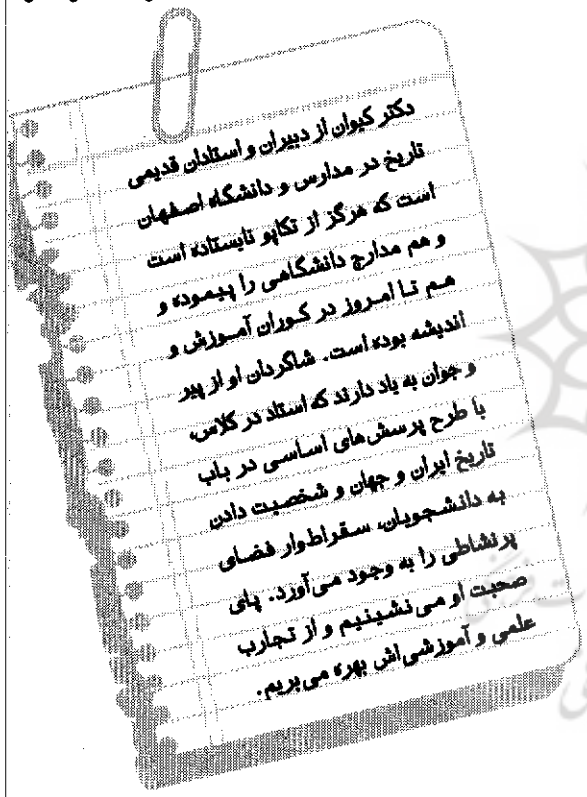 دکتر کیوان از دبیران و استادان قدیمی
تاریخ در مدارس و دانشگاه اصفهان
است که هرگز از تکاپو نایستاده است
و هم مدارج دانشگاهی را پیموده و
هم تا امروز در کوران آموزش و
اندیشه بوده است. شاگردان او از پیر
و جوان به یاد دارند که استاد در کلاس،
با طرح پرسش‌های اساسی در باب
تاریخ ایران و جهان و شخصیت دادن
به دانشجویان، سقراط‌وار فضای
پرنشاطی را به وجود می‌آورد. پای
صحبت او می‌نشینیم و از تجارب
علمی و آموزشی‌اش بهره می‌بریم.